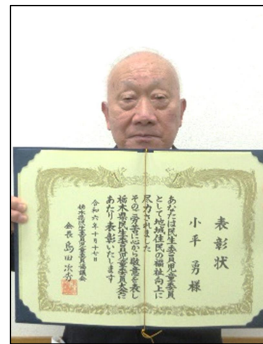 表彰状
小平 勇 様
あなたは民生委員児童委員
として地域住民の福祉向上に
尽力されました
その労苦に心から敬意を表し
栃木県民生委員児童委員大会に
あたり表彰いたします
令和六年十月十七日
栃木県民生委員児童委員協議会
会長 島田